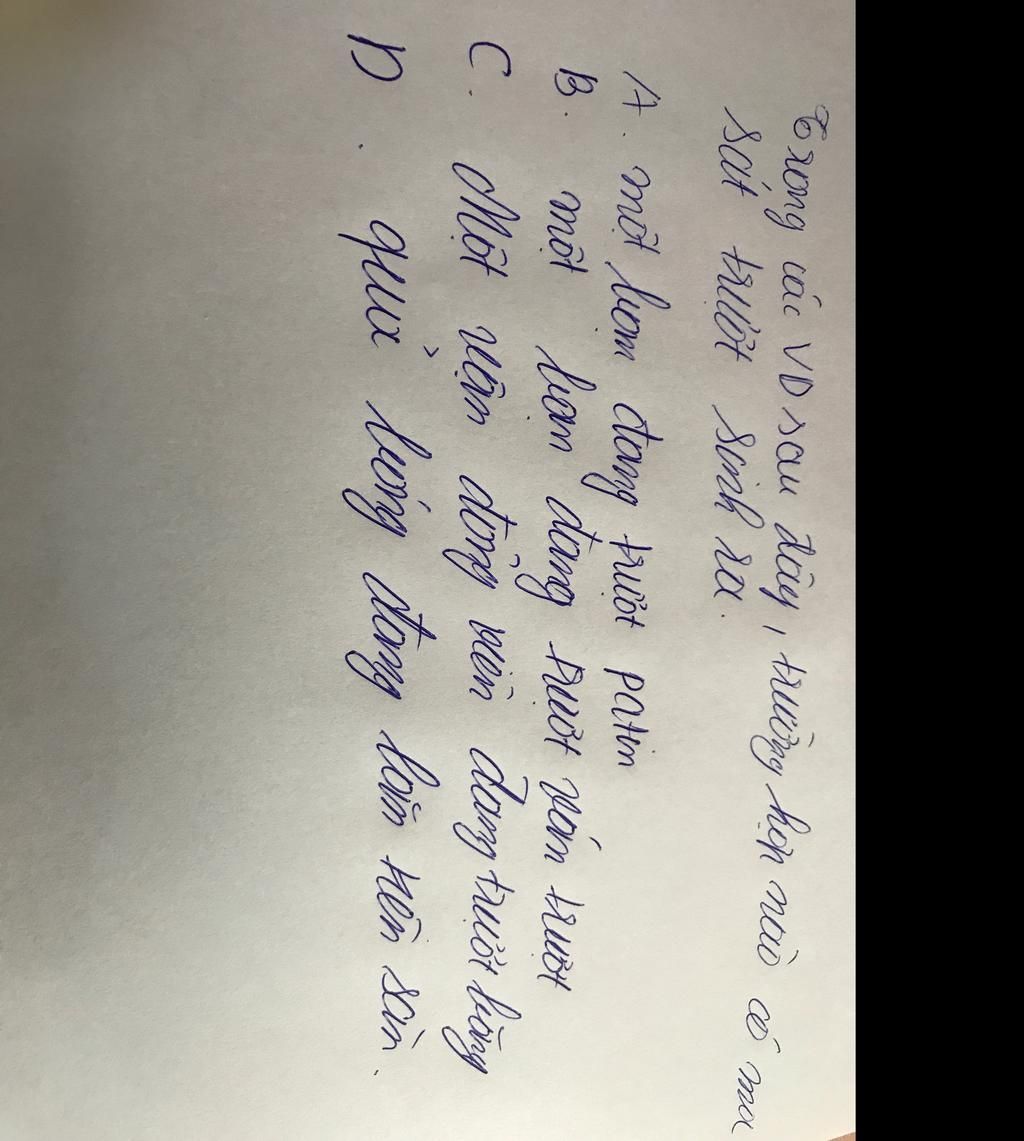 Trong các VD sau đây, trường hợp nào có ma
sát trượt sinh ra.
A. một bạn đang trượt patin
B. một bạn đang trượt ván trượt
C. Một vận động viên đang trượt băng
D. quả bóng đang lăn trên sàn.